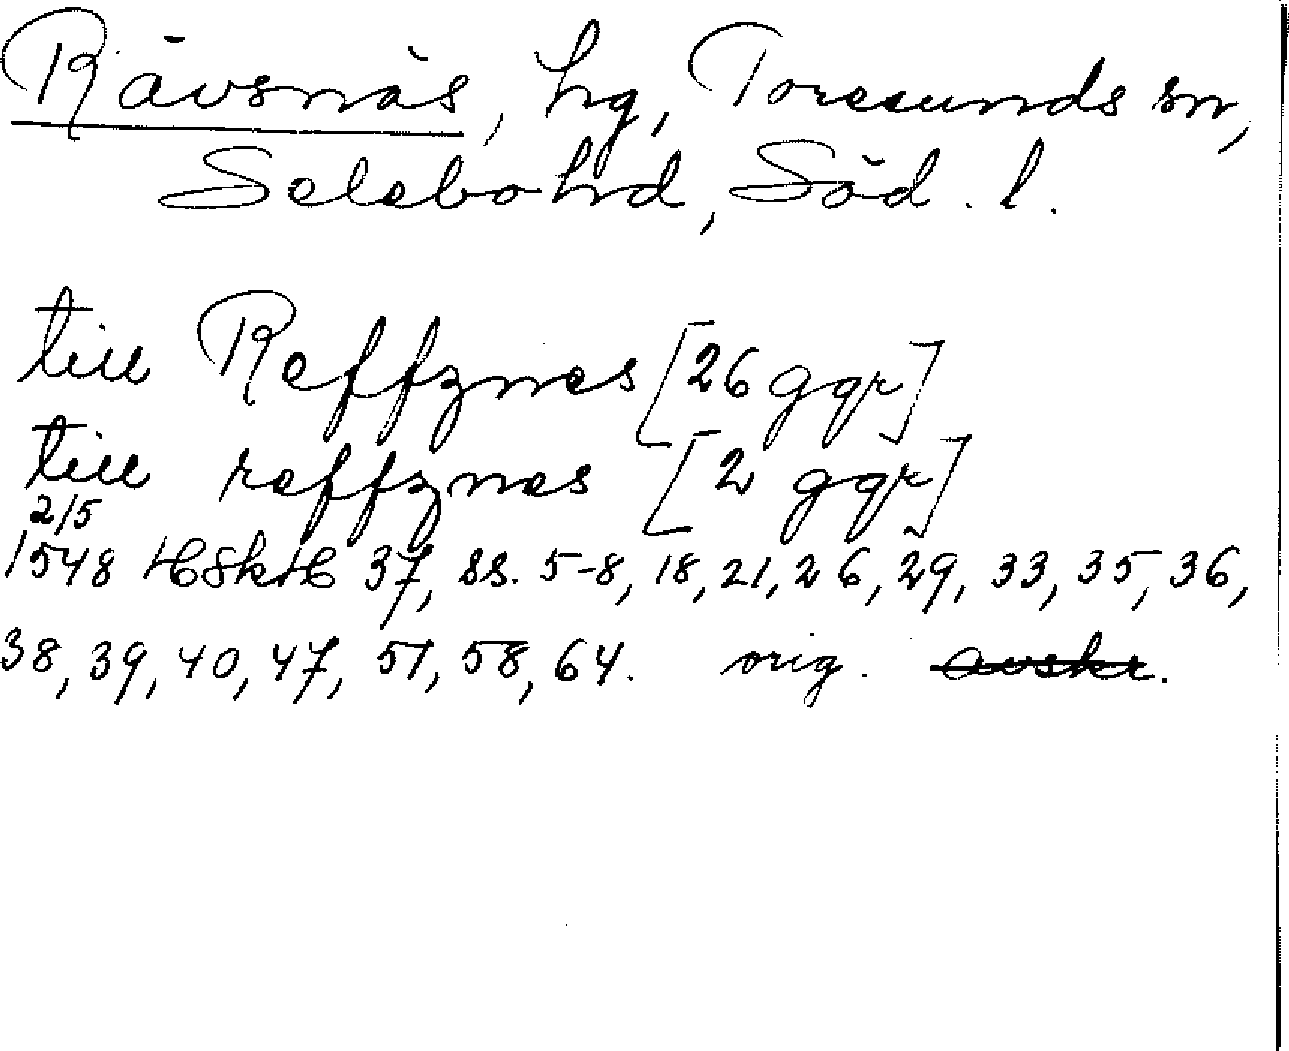 Rävsnäs, hg, Toresunds sn,
Selebo hd, Söd. l.
till Reffznes [26 ggr]
till reffznes [2 ggr]
2/5
1548 HSkH 37, ss. 5-8, 18, 21, 26, 29, 33, 35, 36,
38, 39, 40, 47, 51, 58, 64. orig. avskr.